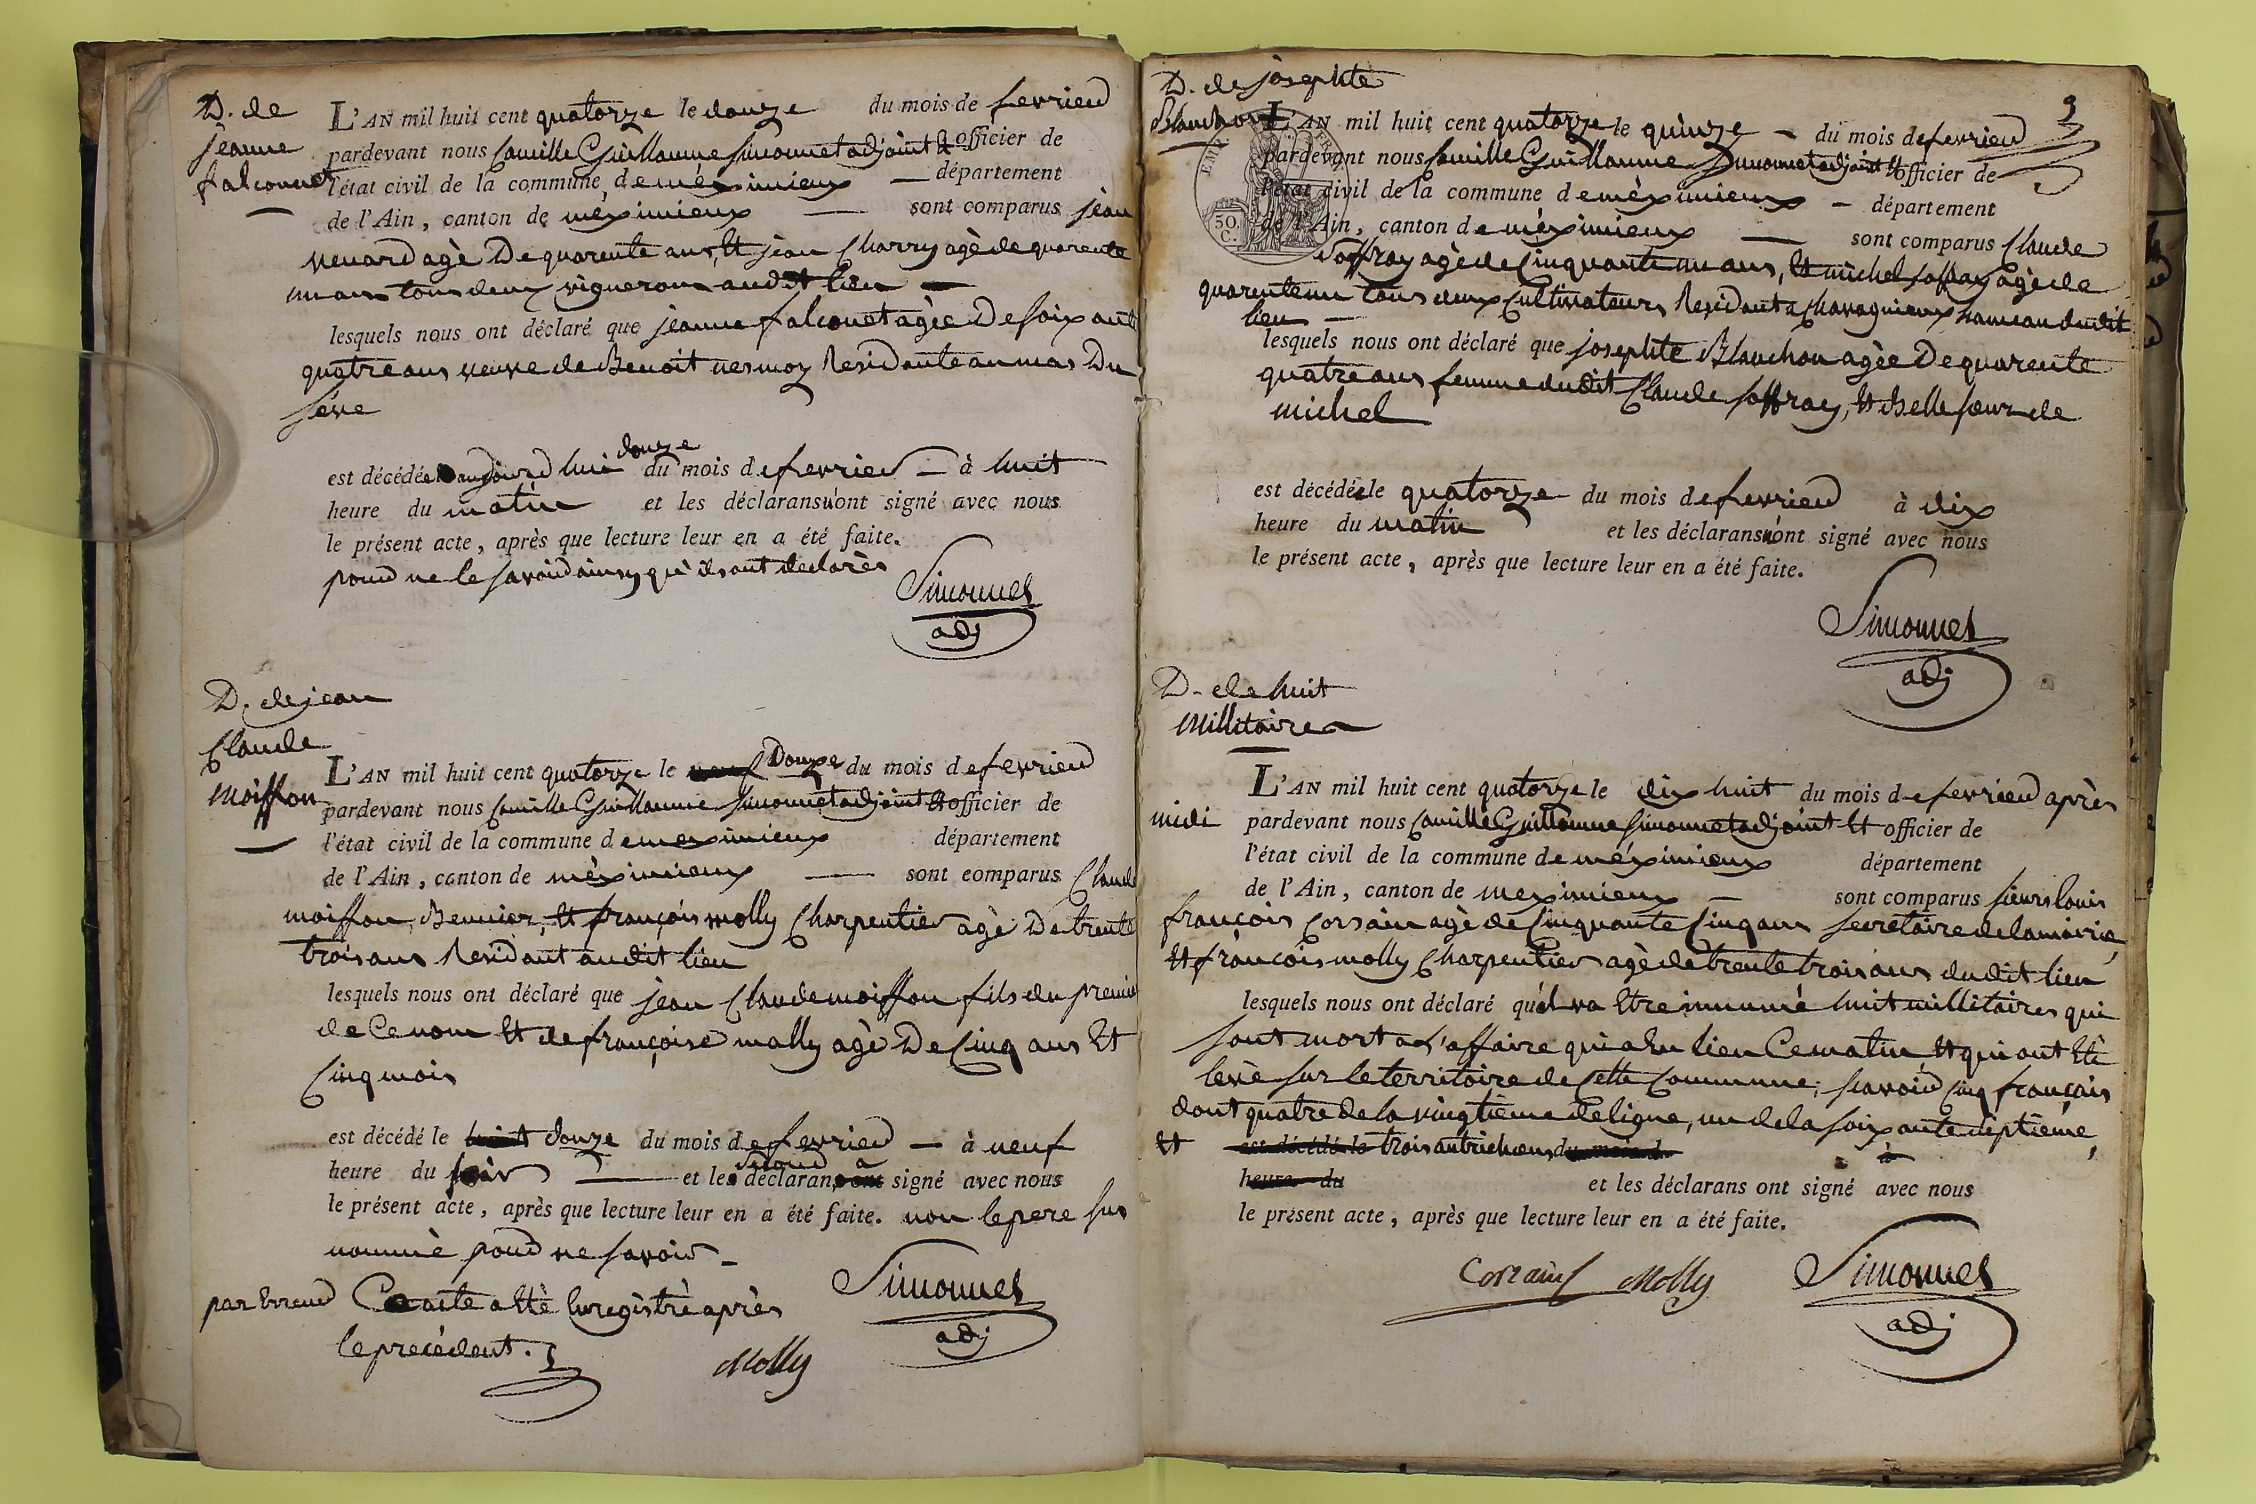 D. de
jeanne
falconnet
L'AN mil huit cent quatorze le douze du mois de fevrier
pardevant nous Camille Guillaume Simonnet adjoint et officier de
l'état civil de la commune de méximieux — département
de l'Ain, canton de méximieux — sont comparus jean
venard agè De quarente ans, et jean Charry agè de quarente
un ans tous deux vignerons audit lieu —
lesquels nous ont déclaré que jeanne falconet agèe De soixante
quatre ans veuve de Benoit vernoz Residante au mas Du
Sève
est décédée aujourd huи douze du mois de fevrier — à huit
heure du matin et les déclarans n'ont signé avec nous
le présent acte, après que lecture leur en a été faite.
pour ne le savoir ainsy què ils ont declarès
Simonnet
adj
D. de jean
Claude
Moiffon
L'AN mil huit cent quatorze le neuf Douze du mois de fevrier
pardevant nous Camille Guillaume Simonnet adjoint et officier de
l'état civil de la commune de meximieux département
de l'Ain, canton de mèximieux — sont comparus Claude
moiffon, et françois molly Charpentier agè De trente
trois ans Residant audit lieu
lesquels nous ont déclaré que jean Claude moiffon fils du premier
de Ce nom et de françoise molly agè De Cinq ans et
Cinq mois
est décédé le huit douze du mois de fevrier — à neuf
heure du soir — et les second déclarans ont a signé avec nous
le présent acte, après que lecture leur en a été faite. non le pere sus
nommè pour ne savoir —
par erreur Ce acte a ètè enregistrè après
le precèdent.
Simonnet
adj
Molly
D. de josephte
Blanchon
9
EMP
30 C.
L'AN mil huit cent quatorze le quinze — du mois de fevrier
pardevant nous Camille Guillaume Simonnet adjoint et officier de
l'état civil de la commune de méximieux — département
de l'Ain, canton de méximieux — sont comparus Claude
Soffray agè de Cinquante un ans, et michel soffray agè de
quarente un tous deux Cultivateurs Residant a Chavagnieux hameau dudit
lieu —
lesquels nous ont déclaré que josephte Blanchon agèe De quarente
quatre ans femme dudit Claude soffray, et Belle sœur de
michel
est décédée le quatorze du mois de fevrier à dix
heure du matin et les déclarans n'ont signé avec nous
le présent acte, après que lecture leur en a été faite.
Simonnet
adj
D. de huit
Millitaires
L'AN mil huit cent quatorze le dix huit du mois de fevrier après
midi pardevant nous Camille Guillaume Simonnet adjoint et officier de
l'état civil de la commune de méximieux département
de l'Ain, canton de meximieux — sont comparus sieurs louis
françois Corsain agè de Cinquante Cinq ans secretaire de la mairie,
et françois molly Charpentier agè de trente trois ans dudit lieu
lesquels nous ont déclaré qu'il va être inhumé huit millitaires qui
sont mort a l'affaire qui a eu lieu Ce matin et qui ont ètè
levè sur le territoire de Cette Commune; savoir Cinq français
dont quatre de la vingtieme de ligne, un de la soixante septieme,
et est décédé le trois autrichiens du mois d à
heure du et les déclarans ont signé avec nous
le présent acte, après que lecture leur en a été faite.
Corsain Molly Simonnet
adj